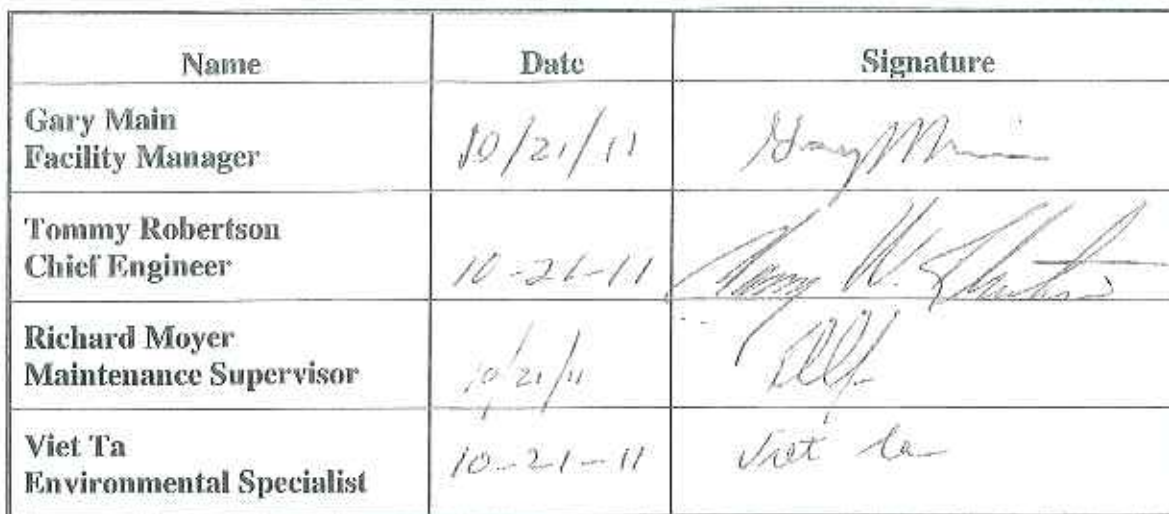 Name Date Signature
Gary Main
Facility Manager 10/21/11 Gary Main
Tommy Robertson
Chief Engineer 10-21-11 Tommy W. Robertson
Richard Moyer
Maintenance Supervisor 10/21/11
Viet Ta
Environmental Specialist 10-21-11 Viet Ta